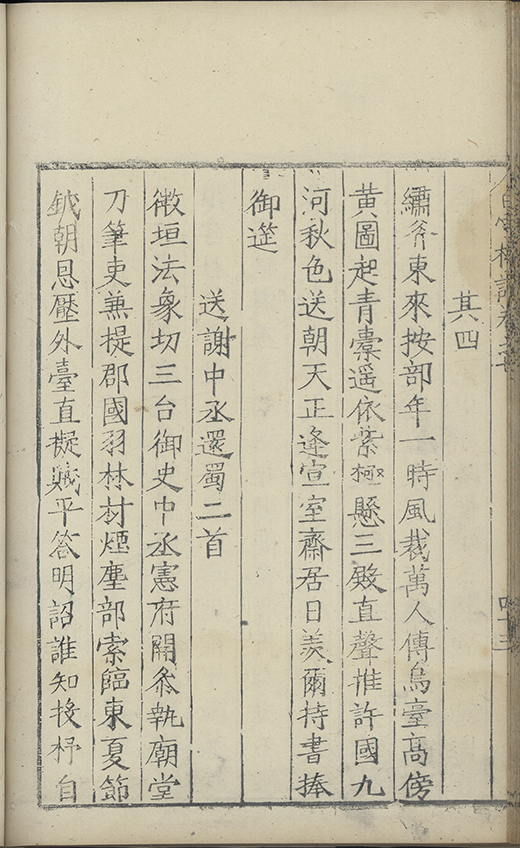 其四
繡斧東來按部年一時風裁萬人傳烏臺高傍
黃圖起青橐遥依紫極懸三殿直聲推許國九
河秋色送朝天正逢宣室齋居日羨爾持書捧
御筵
送謝中丞還蜀二首
微垣法象切三台御史中丞憲府開叅執廟堂
刀筆吏兼提郡國羽林材煙塵部索臨東夏節
鉞朝恩壓外臺直擬賊平答明詔誰知投杼自